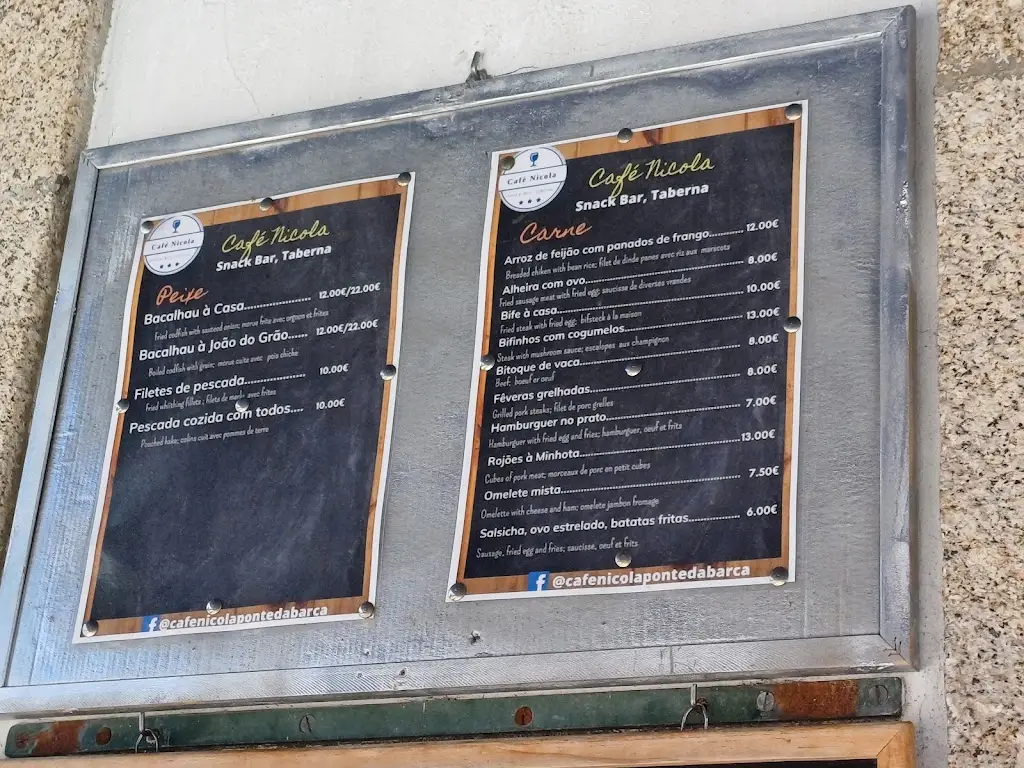 Café Nicola
Café Nicola
Snack Bar, Taberna
Peixe
Bacalhau à Casa.................... 12.00€/22.00€
Fried codfish with sauteed onion; morue frite avec oignon et frites
Bacalhau à João do Grão...... 12.00€/22.00€
Boiled codfish with grain; morue cuite avec pois chiche
Filetes de pescada.................. 10.00€
fried whithing fillets ; filets de merlu avec frites
Pescada cozida com todos.... 10.00€
Poached hake; colins cuit avec pommes de terre
@cafenicolapontedabarca
Café Nicola
Café Nicola
Snack Bar, Taberna
Carne
Arroz de feijão com panados de frango.......... 12.00€
Breaded chiken with bean rice; filet de dinde panes avec riz aux maracots
Alheira com ovo.................... 8.00€
Fried sausage meat with fried egg; saucisse de diverses viandes
Bife à casa.................... 10.00€
Fried steak with fried egg; bifsteck a la maison
Bifinhos com cogumelos.................... 13.00€
Steak with mushroom sauce; escalopes aux champignon
Bitoque de vaca.................... 8.00€
Beef; boeuf er oeuf
Féveras grelhadas.................... 8.00€
Grilled pork steaks; filet de porc grelles
Hamburguer no prato.................... 7.00€
Hamburguer with fried egg and fries; hamburguer, oeuf et frits
Rojões à Minhota.................... 13.00€
Cubes of pork meat; morceaux de porc en petit cubes
Omelete mista.................... 7.50€
Omelette with cheese and ham; omelete jambon fromage
Salsicha, ovo estrelado, batatas fritas............... 6.00€
Sausage, fried egg and fries; saucisse, oeuf et frits
@cafenicolapontedabarca